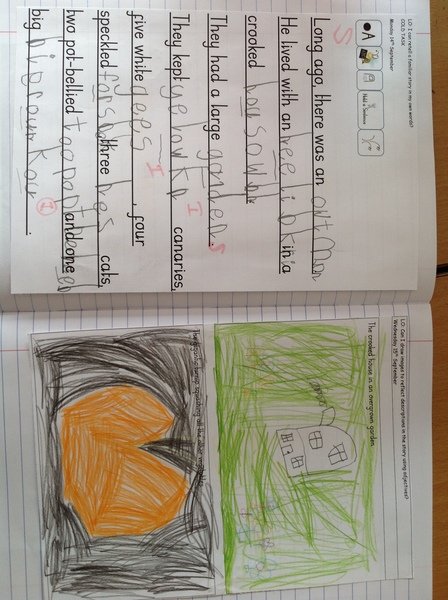 LO: I can retell a familiar story in my own words?
COLD TASK
Monday 14th September
A
Hold a Sentence
S
Long ago, there was an owt man
He lived with an in a
crooked
They had a large garden S.
They kept canaries,
five white gees, four
speckled three hes cats,
two pot-bellied and one
big kow.
LO: Can I draw images to reflect descriptions in the story using adjectives?
Wednesday September
The crooked house in an overgrown garden.
turnip squashing all the other